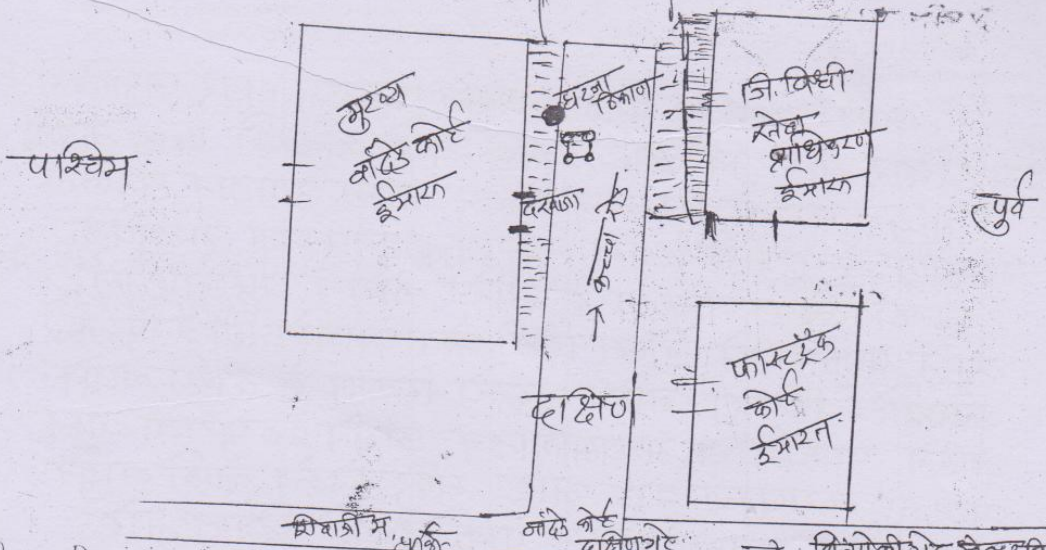 पश्चिम
मुख्य
नांदेड कोर्ट
ईमारत
घटना
ठिकाण
दरवाजा
कच्चा
जि. विधी
सेवा
प्राधिकरण
ईमारत
पुर्व
फास्टट्रॅक
कोर्ट
ईमारत
दक्षिण
शिवाजी
नांदेड कोर्ट
दक्षिण गेट